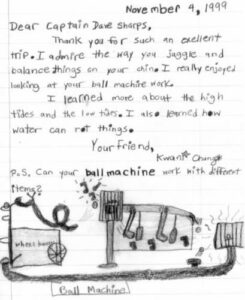 November 4, 1999
Dear Captain Dave Sharps,
Thank you for such an exellent
trip. I admire the way you juggle and
balance things on your chin. I really enjoyed
looking at your ball machine work.
I learned more about the high
tides and the low tides. I also learned how
water can rot things.
Your friend,
Kwanik Chung
P.S. Can your ball machine work with different
items?
wheel
Ball Machine